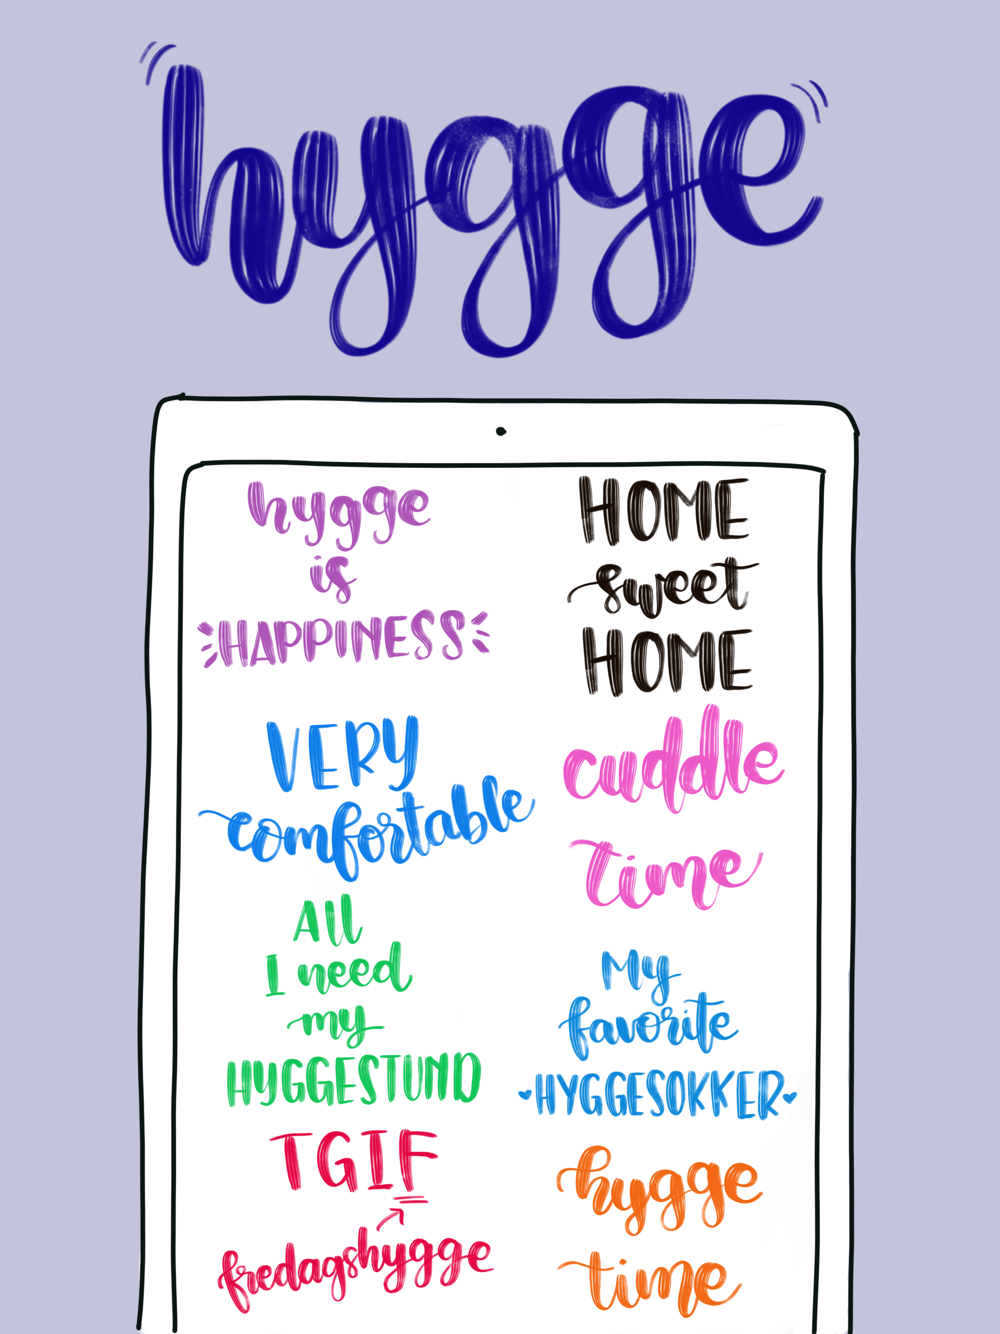 hygge
hygge
is
HAPPINESS
VERY
comfortable
All
I need
my
HYGGESTUND
TGIF
fredagshygge
HOME
sweet
HOME
cuddle
time
My
favorite
HYGGESOKKER
hygge
time